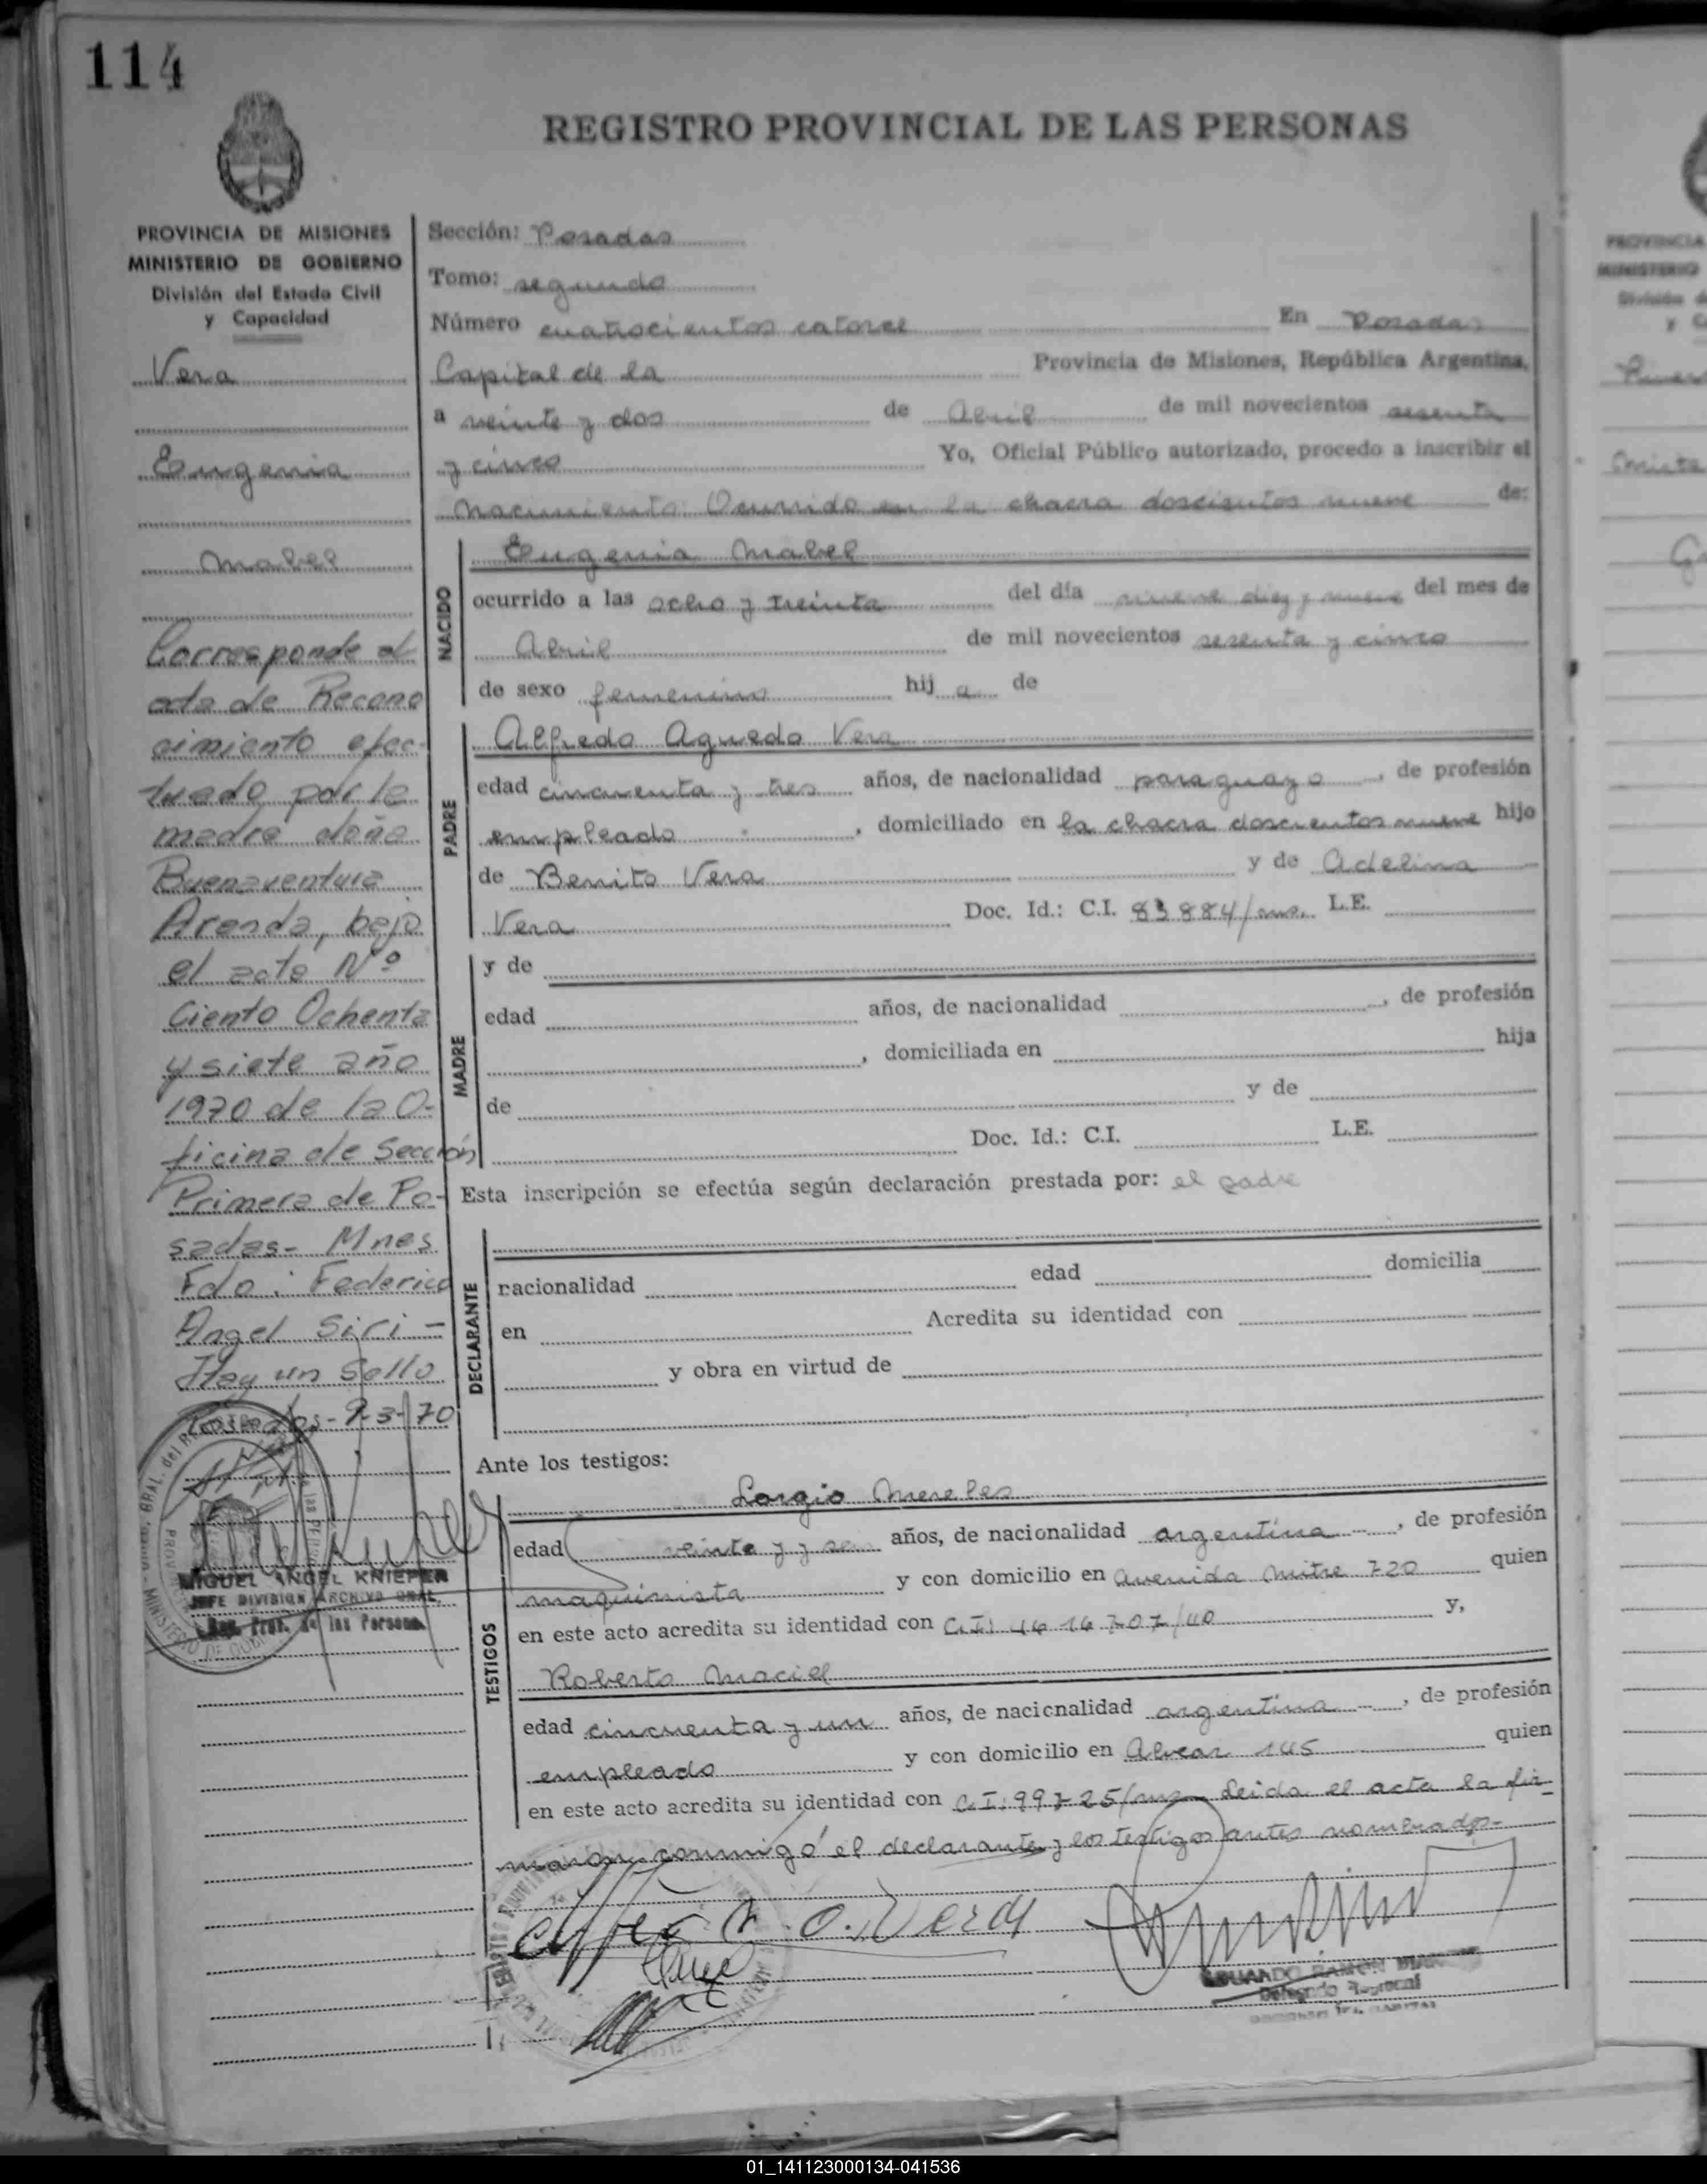 114
REGISTRO PROVINCIAL DE LAS PERSONAS
PROVINCIA DE MISIONES
MINISTERIO DE GOBIERNO
División del Estado Civil
y Capacidad
Vera
Eugenia
Mabel
Corresponde al
acta de Recono
cimiento efec-
tuado por la
madre doña
Buenaventura
Aranda, bajo
el acta Nº
Ciento Ochenta
y siete año
1970 de la O-
ficina de Sección
Primera de Po-
sadas- Mnes
Fdo: Federico
Angel Siri -
Hay un Sello
Posadas-9-3-70
MIGUEL ANGEL KNIEPER
JEFE DIVISION ARCHIVO GRAL.
Reg. Prov. de las Personas
Sección: Posadas
Tomo: segundo
Número cuatrocientos catorce En Posadas
Capital de la Provincia de Misiones, República Argentina,
a veinte y dos de Abril de mil novecientos sesenta
y cinco Yo, Oficial Público autorizado, procedo a inscribir el
nacimiento Ocurrido en la chacra doscientos nueve de:
NACIDO
Eugenia Mabel
ocurrido a las ocho y treinta del día diez y nueve del mes de
Abril de mil novecientos sesenta y cinco
de sexo femenino hij a de
PADRE
Alfredo Aguedo Vera
edad cincuenta y tres años, de nacionalidad paraguayo, de profesión
empleado, domiciliado en la chacra doscientos nueve hijo
de Benito Vera y de Adelina
Vera Doc. Id.: C.I. 83884/ L.E.
MADRE
y de
edad años, de nacionalidad , de profesión
, domiciliada en hija
de y de
Doc. Id.: C.I. L.E.
Esta inscripción se efectúa según declaración prestada por: el padre
DECLARANTE
nacionalidad edad domicilia
en Acredita su identidad con
y obra en virtud de
Ante los testigos:
TESTIGOS
Lorgio Mereles
edad veinte y años, de nacionalidad argentina, de profesión
maquinista y con domicilio en avenida Mitre 720 quien
en este acto acredita su identidad con C.I: y,
Roberto Maciel
edad cincuenta y un años, de nacionalidad argentina, de profesión
empleado y con domicilio en Alvear 145 quien
en este acto acredita su identidad con C.I: Leida el acta la fir-
maron conmigo el declarante y los testigos antes nombrados-
EDUARDO RAMON
Delegado Regional
01_141123000134-041536